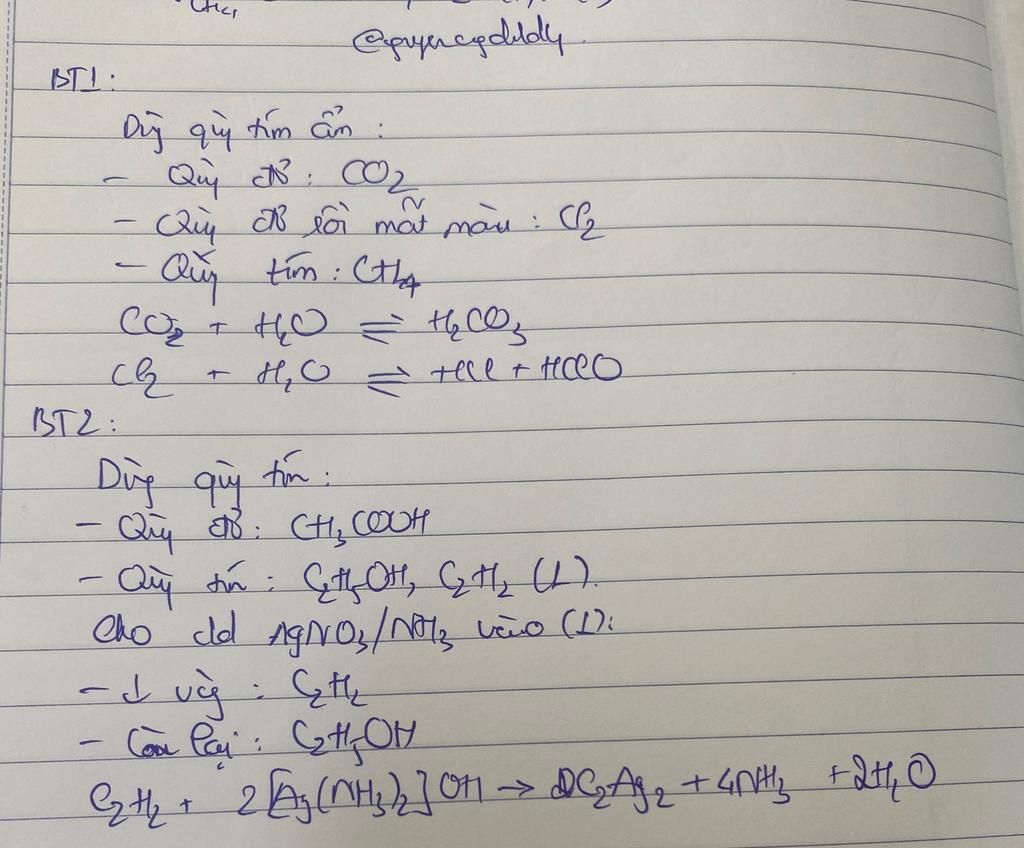 CH4
BT1:
Dùg quỳ tím ẩm:
- Quỳ đỏ: CO2
- Quỳ đỏ rồi mất màu: Cl2
- Quỳ tím: CH4
CO2 + H2O ⇌ H2CO3
Cl2 + H2O ⇌ HCl + HClO
BT2:
Dùg quỳ tím:
- Quỳ đỏ: CH3COOH
- Quỳ tím: C2H5OH, C2H2 (1).
Cho dd AgNO3/NH3 vào (1):
- ↓ vàg: C2H2
- Còn lại: C2H5OH
C2H2 + 2[Ag(NH3)2]OH → C2Ag2 + 4NH3 + 2H2O